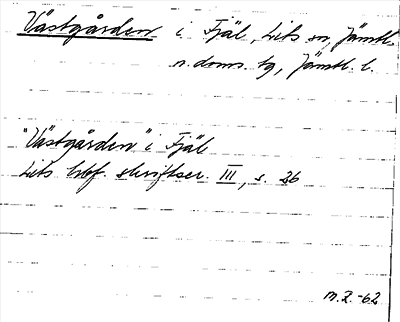 Västgården i Fjäl, Lits sn, Jämtl.
n. doms. tg, Jämtl. l.
"Västgården" i Fjäl
Lits hbf. skriftser. III, s. 26
m.z.-62